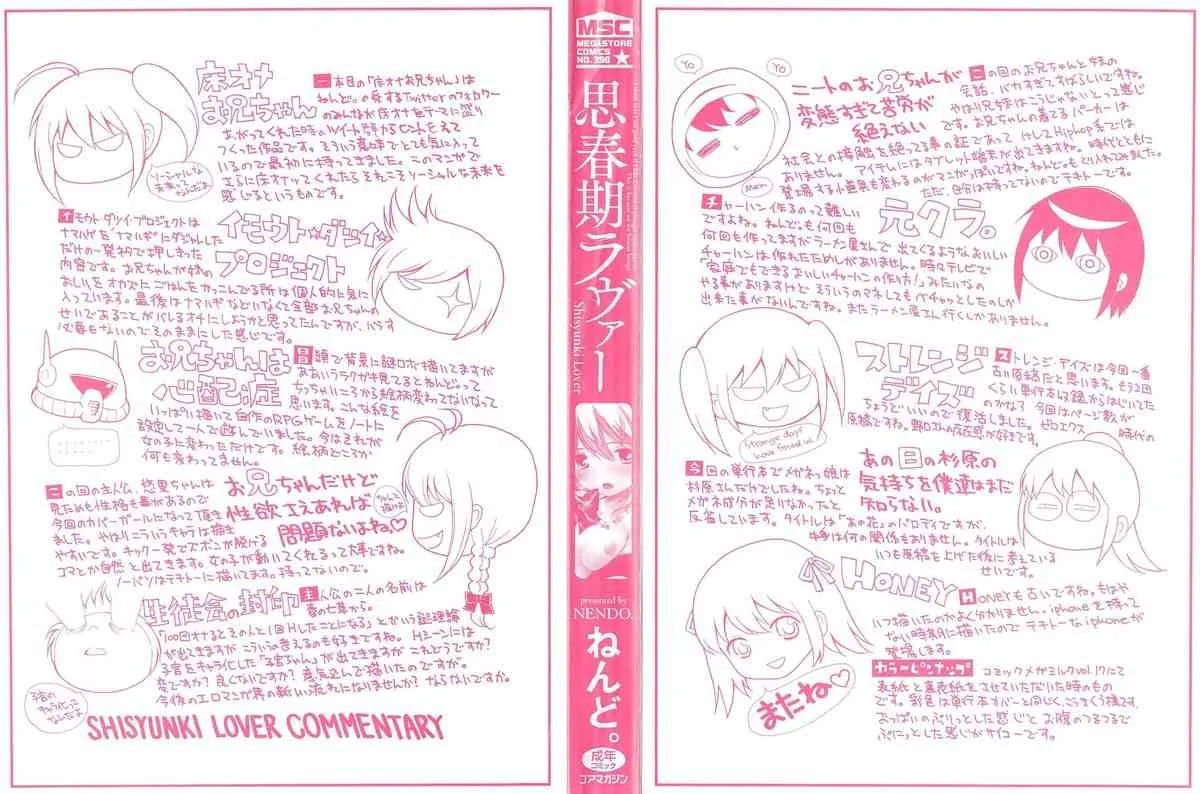 床オナお兄ちゃん
一本目の「床オナお兄ちゃん」は
ねんど。の愛するTwitterのフォロワー
のみんなが床オナをテーマに盛り
あがってくれた時のツイート群からヒントをえて
つくった作品です。そういう意味でとても気に入って
いるので最初に持ってきました。このマンガで
さらに床オナってくれたらそれこそソーシャルな未来を
感じるというものです。
ソーシャルな
未来って
なんだよ
イモウト☆ダツイ☆
プロジェクト
イモウトダツイプロジェクトは
ナマハゲを「ナマルギ」にダジャレした
だけの一発ネタで押しきった
内容です。お兄ちゃんが妹の
おしりをオカズにごはんをかっこんでる所は個人的に気に
入っています。最後はナマルギなどいなくて全部お兄ちゃんの
せいであることがバレるオチにしようかと思ってたんですが、バラす
必要もないのでそのままにした感じです。
お兄ちゃんは
心配症
冒頭で背景に謎ロボ描いてますが
ああいうラクガキ見てるとねんどって
ちっちゃいころから絵柄変わってないなって
思います。こんな絵を
いっぱい描いて自作のRPGゲームをノートに
設定して一人で遊んでいました。今はそれが
女の子に変わっただけです。絵柄どころか
何も変わってません。
お兄ちゃんだけど
性欲さえあれば
問題ないよね♡
この回の主人公、悠里ちゃんは
見ためも性格も毒があるので
今回のカバーガールになって頂き
ました。やはりこういうキャラは描き
やすいです。キック一発でズボンが脱げる
コマとか自然と出てきます。女の子が動いてくれるって大事ですね。
ノーパソはテキトーに描いてます。持ってないので。
ちゃんと
描けよ
生徒会の封印
主人公の二人の名前は
春の七草から。
「100回オナるとその人と1回Hしたことになる」とかいう謎理論
が出てきますがこういうの考えるのも好きですね。Hシーンには
子宮をキャラ化した「子宮ちゃん」が出てきますがこれどうですか?
変ですか?良くないですか?意気込んで描いたのですが。
今後のエロマンガ界の新しい流れになりませんか?ならないですか。
子宮の
キャラ化って
なんだよ
SHISYUNKI LOVER COMMENTARY
MSC
MEGASTORE
COMICS
NO.350
★
思春期ラヴァー
Shisyunki Lover
presented by
NENDO.
ねんど。
成年
コミック
コアマガジン
Yo
Yo
Men
ニートのお兄ちゃんが
変態すぎて苦労が
絶えない
この回のお兄ちゃんと妹の
会話、バカすぎてすばらしいですね。
やはり兄妹はこうじゃないとって感じ
です。お兄ちゃんの着てるパーカーは
社会との接触を絶ってる事の証であって、けしてHiphop系では
ありません。アイテムにはタブレット端末が出てきますね。時代とともに
登場する小道具も変わるのがマンガっぽいですね。ねんど。もとり入れてみました。
ただ、自分は持ってないのでテキトーです。
元クラ。
チャーハン作るのって難しい
ですよね。ねんど。も何回も
何回も作ってますがラーメン屋さんで出てくるようなおいしい
チャーハンは作れたためしがありません。時々テレビで
「家庭でもできるおいしいチャーハンの作り方!」みたいなの
やる事がありますけどそういうのマネしてもベチャッとしたのしか
出来た事がないんですね。またラーメン屋さん行くしかありません。
ストレンジ
デイズ
ストレンジ・デイズは今回一番
古い原稿だと思います。もう2回
くらい単行本の収録からはじいてた
のかなす 今回はページ数が
ちょうどいいので復活しました。ゼロエクス時代の
原稿ですね。野口さんの存在感が好きです。
Strange days
have found us
あの日の杉原の
気持ちを僕達はまだ
知らない。
今回の単行本でメガネっ娘は
杉原さんだけでしたね。ちょっと
メガネ成分が足りなかったと
反省しています。タイトルは「あの花」のパロディですが、
中身は何の関係もありません。タイトルは
いつも原稿を上げた後に考えている
せいです。
HONEY
HONEYも古いですね。もはや
いつ描いたのかよく分かりません。iphoneを持って
ない時期に描いたのでテキトーなiphoneが
登場します。
またね♡
カラーピンナップ
コミックメガミルクvol.17にて
表紙と裏表紙をさせていただいた時のもの
です。彩色は単行本カバーと同じく、こうまくう様です。
おっぱいのぷりっとした感じとお腹のつるつるで
ぷにっとした感じがサイコーです。